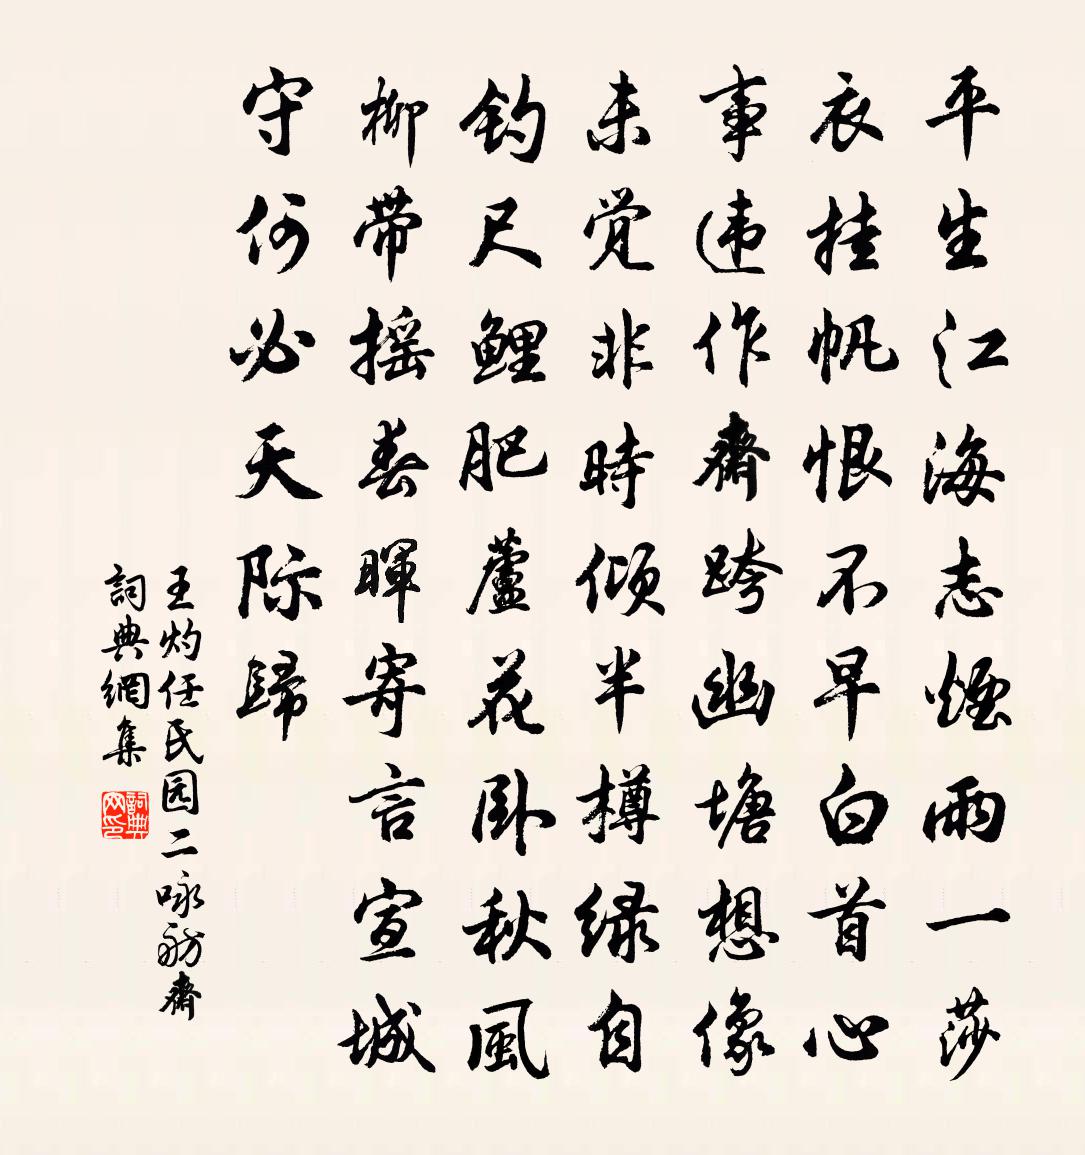 平生江海志煙雨一莎
衣挂帆恨不早白首心
事违作齋跨幽塘想像
未觉非時倾半樽绿自
钓尺鯉肥蘆花卧秋風
柳带摇春暉寄言宣城
守何必天际歸
王灼任民园二咏舫齋
詞典網集
詞典网印